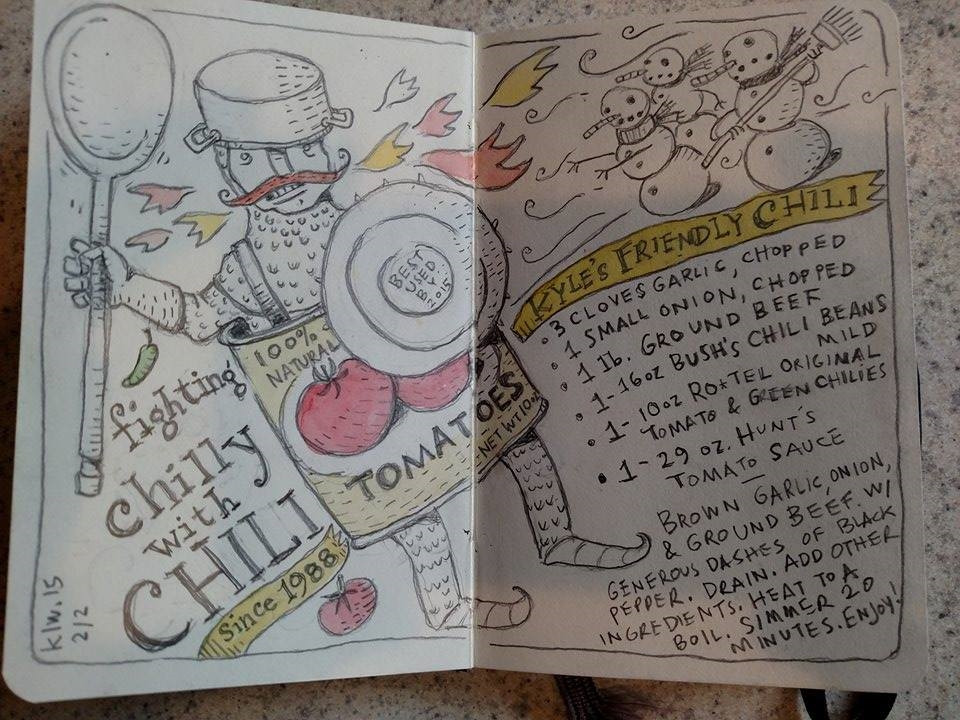 BEST
USED
BY
2015
100%
NATURAL
TOMATOES
NET WT 10oz
fighting
chilly
with
CHILI
Since 1988
klw.15
2/2
KYLE'S FRIENDLY CHILI
• 3 CLOVES GARLIC, CHOPPED
• 1 SMALL ONION, CHOPPED
• 1 lb. GROUND BEEF
• 1-16oz BUSH'S CHILI BEANS
MILD
• 1- 10oz RO*TEL ORIGINAL
TOMATO & GREEN CHILIES
• 1- 29 oz. HUNT'S
TOMATO SAUCE
BROWN GARLIC, ONION,
& GROUND BEEF W/
GENEROUS DASHES OF BLACK
PEPPER. DRAIN. ADD OTHER
INGREDIENTS. HEAT TO A
BOIL. SIMMER 20
MINUTES. ENJOY!